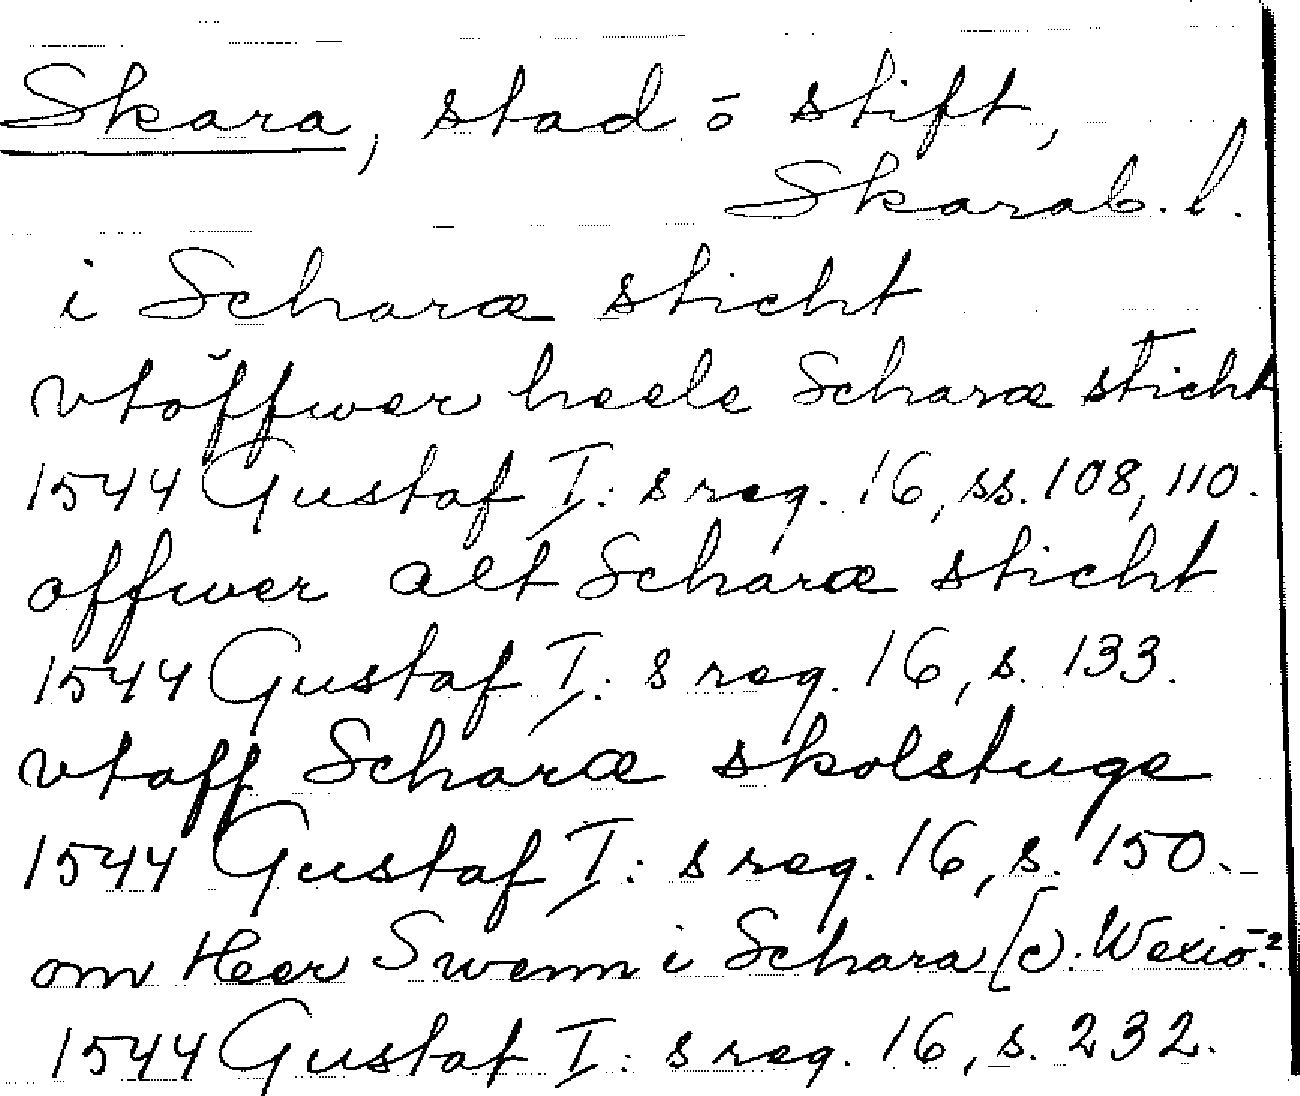 Skara, stad ō stift,
Skarab. l.
i Scharæ sticht
vtöffwer heele Scharæ sticht
1544 Gustaf I:s reg. 16, ss. 108, 110.
offwer alt Scharæ sticht
1544 Gustaf I:s reg. 16, s. 133.
vtaff Scharæ skolstuge
1544 Gustaf I:s reg. 16, s. 150.
om Heer Swenn i Schara [o: Wexiö?]
1544 Gustaf I:s reg. 16, s. 232.